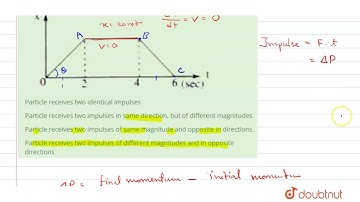 x = const
dx/dt = V = 0
X
A
B
V=0
θ
C
0
2
4
6 (sec)
t
Impulse = F.t
= ΔP
Particle receives two identical impulses
Particle receives two impulses in same direction, but of different magnitudes
Particle receives two impulses of same magnitude and opposite in directions.
Particle receives two impulses of different magnitudes and in opposite directions
ΔP = final momentum - initial momentum
doubtnut